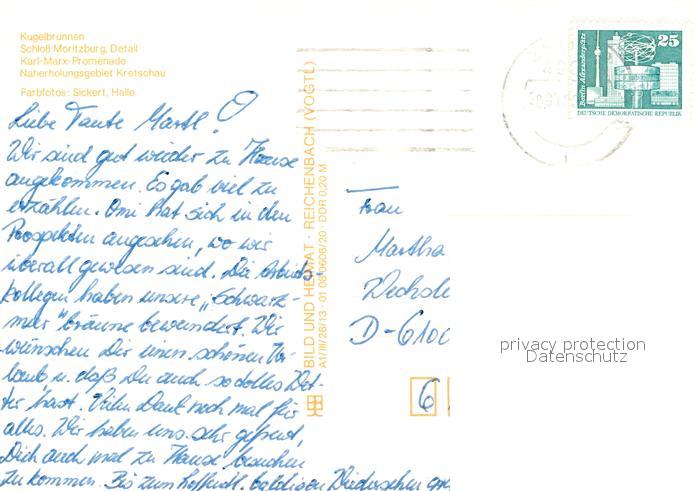 Kugelbrunnen
Schloß Moritzburg, Detail
Karl-Marx-Promenade
Naherholungsgebiet Kretschau
Farbfotos: Sickert, Halle
Liebe Tante Martl!
Wir sind gut wieder zu Hause
angekommen. Es gab viel zu
erzählen. Omi hat sich in den
Prospekten angesehen, wo wir
überall gewesen sind. Die Arbeits-
kollegen haben unsere „Schwarz-
meer"bräune bewundert. Wir
wünschen Dir einen schönen Ur-
laub u. daß Du auch so dolles Wet-
ter hast. Vielen Dank noch mal für
alles. Wir haben uns sehr gefreut,
Dich auch mal zu Hause besuchen
zu kommen. Bis zum hoffentl. baldigen Wiedersehen
BILD UND HEIMAT · REICHENBACH (VOGTL)
A1/III/26/13 · 01 08 0606/20 · DDR 0,20 M
Berlin, Alexanderplatz
25
DEUTSCHE DEMOKRATISCHE REPUBLIK
Frau
Martha
D-6100
6
privacy protection
Datenschutz